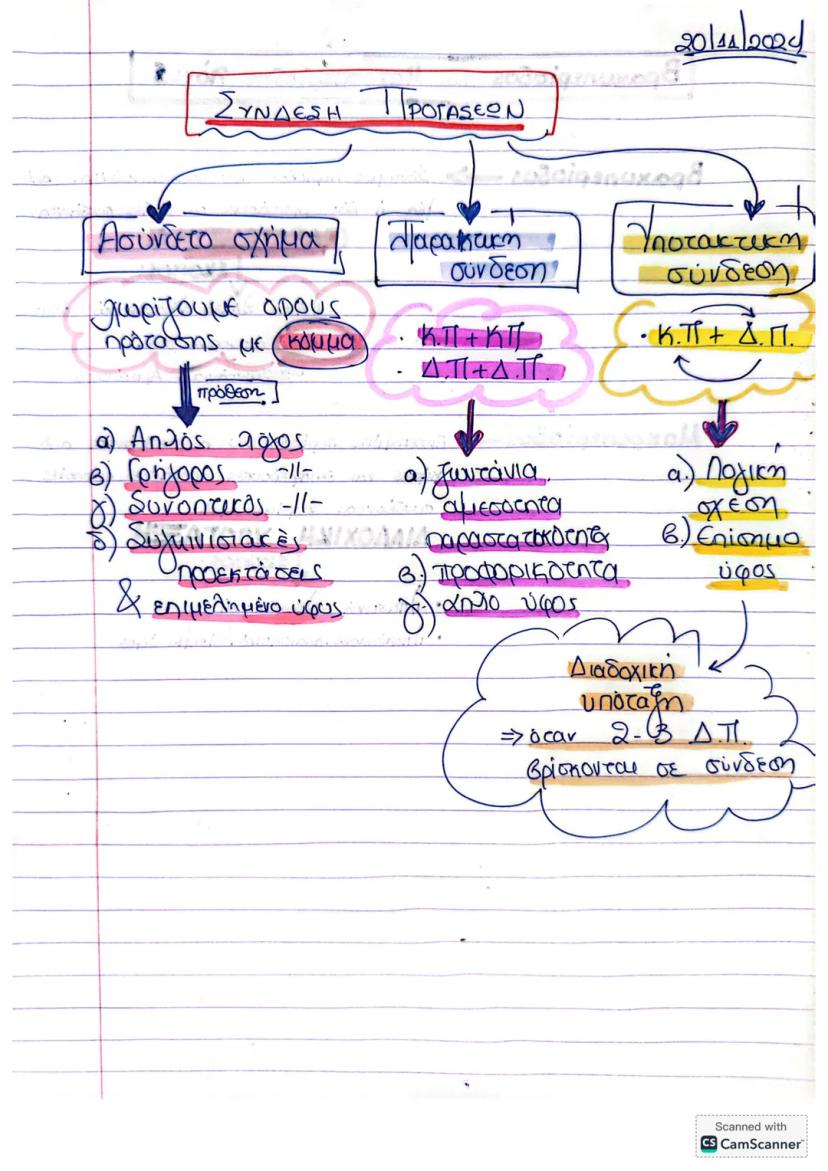 20/11/2024
ΣΥΝΔΕΣΗ ΠΡΟΤΑΣΕΩΝ
Ασύνδετο σχήμα
χωρίζουμε όρους
πρότασης με κόμμα
πρόθεση
α) Απλός λόγος
β) Γρήγορος -//-
γ) Συνοπτικός -//-
δ)
προεκτάσεις
& επιμελημένο ύφος
Παρατακτική
σύνδεση
· Κ.Π + Κ.Π
· Δ.Π + Δ.Π.
α) ζωντάνια
αμεσότητα
παραστατικότητα
β.) προφορικότητα
γ) απλό ύφος
Υποτακτική
σύνδεση
· Κ.Π + Δ.Π.
α.) Λογική
σχέση
β.) Επίσημο
ύφος
Διαδοχική
υπόταξη
⇒ όταν 2-3 Δ.Π.
βρίσκονται σε σύνδεση
Scanned with
CS CamScanner